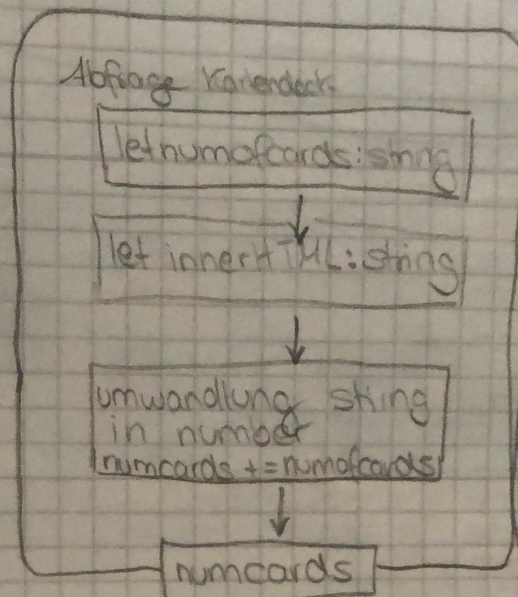 Abfrage Kartendeck
let numofcards: string
let innerHTML: string
umwandlung string
in number
numcards += numofcards
numcards